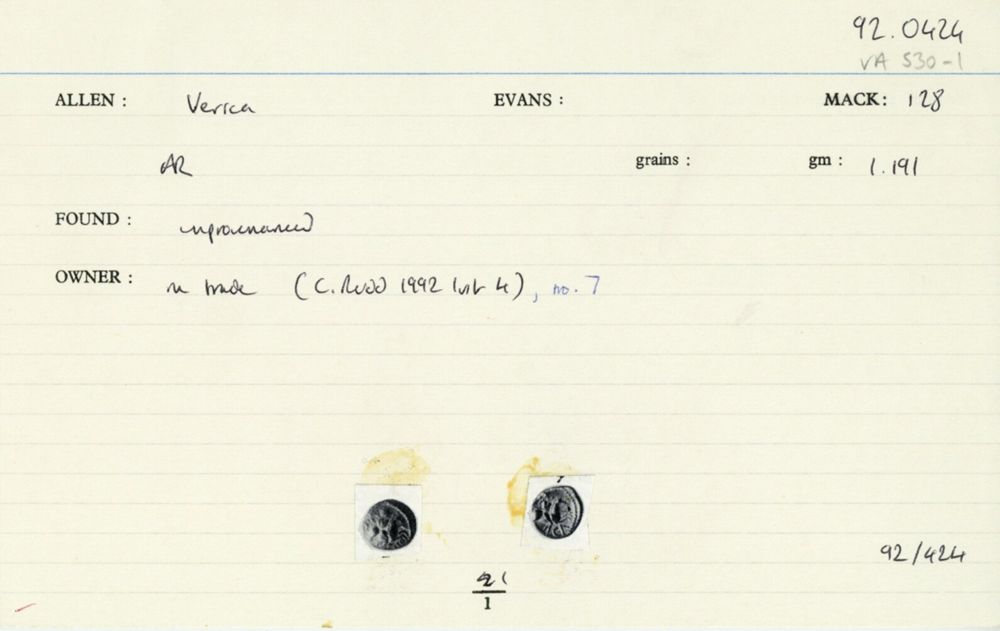 92.0424
VA 530-1
ALLEN : Verica EVANS : MACK: 128
AR grains : gm : 1.191
FOUND : unprovenanced
OWNER : in trade (C. Rudd 1992 list 4), no. 7
92/424
21
1